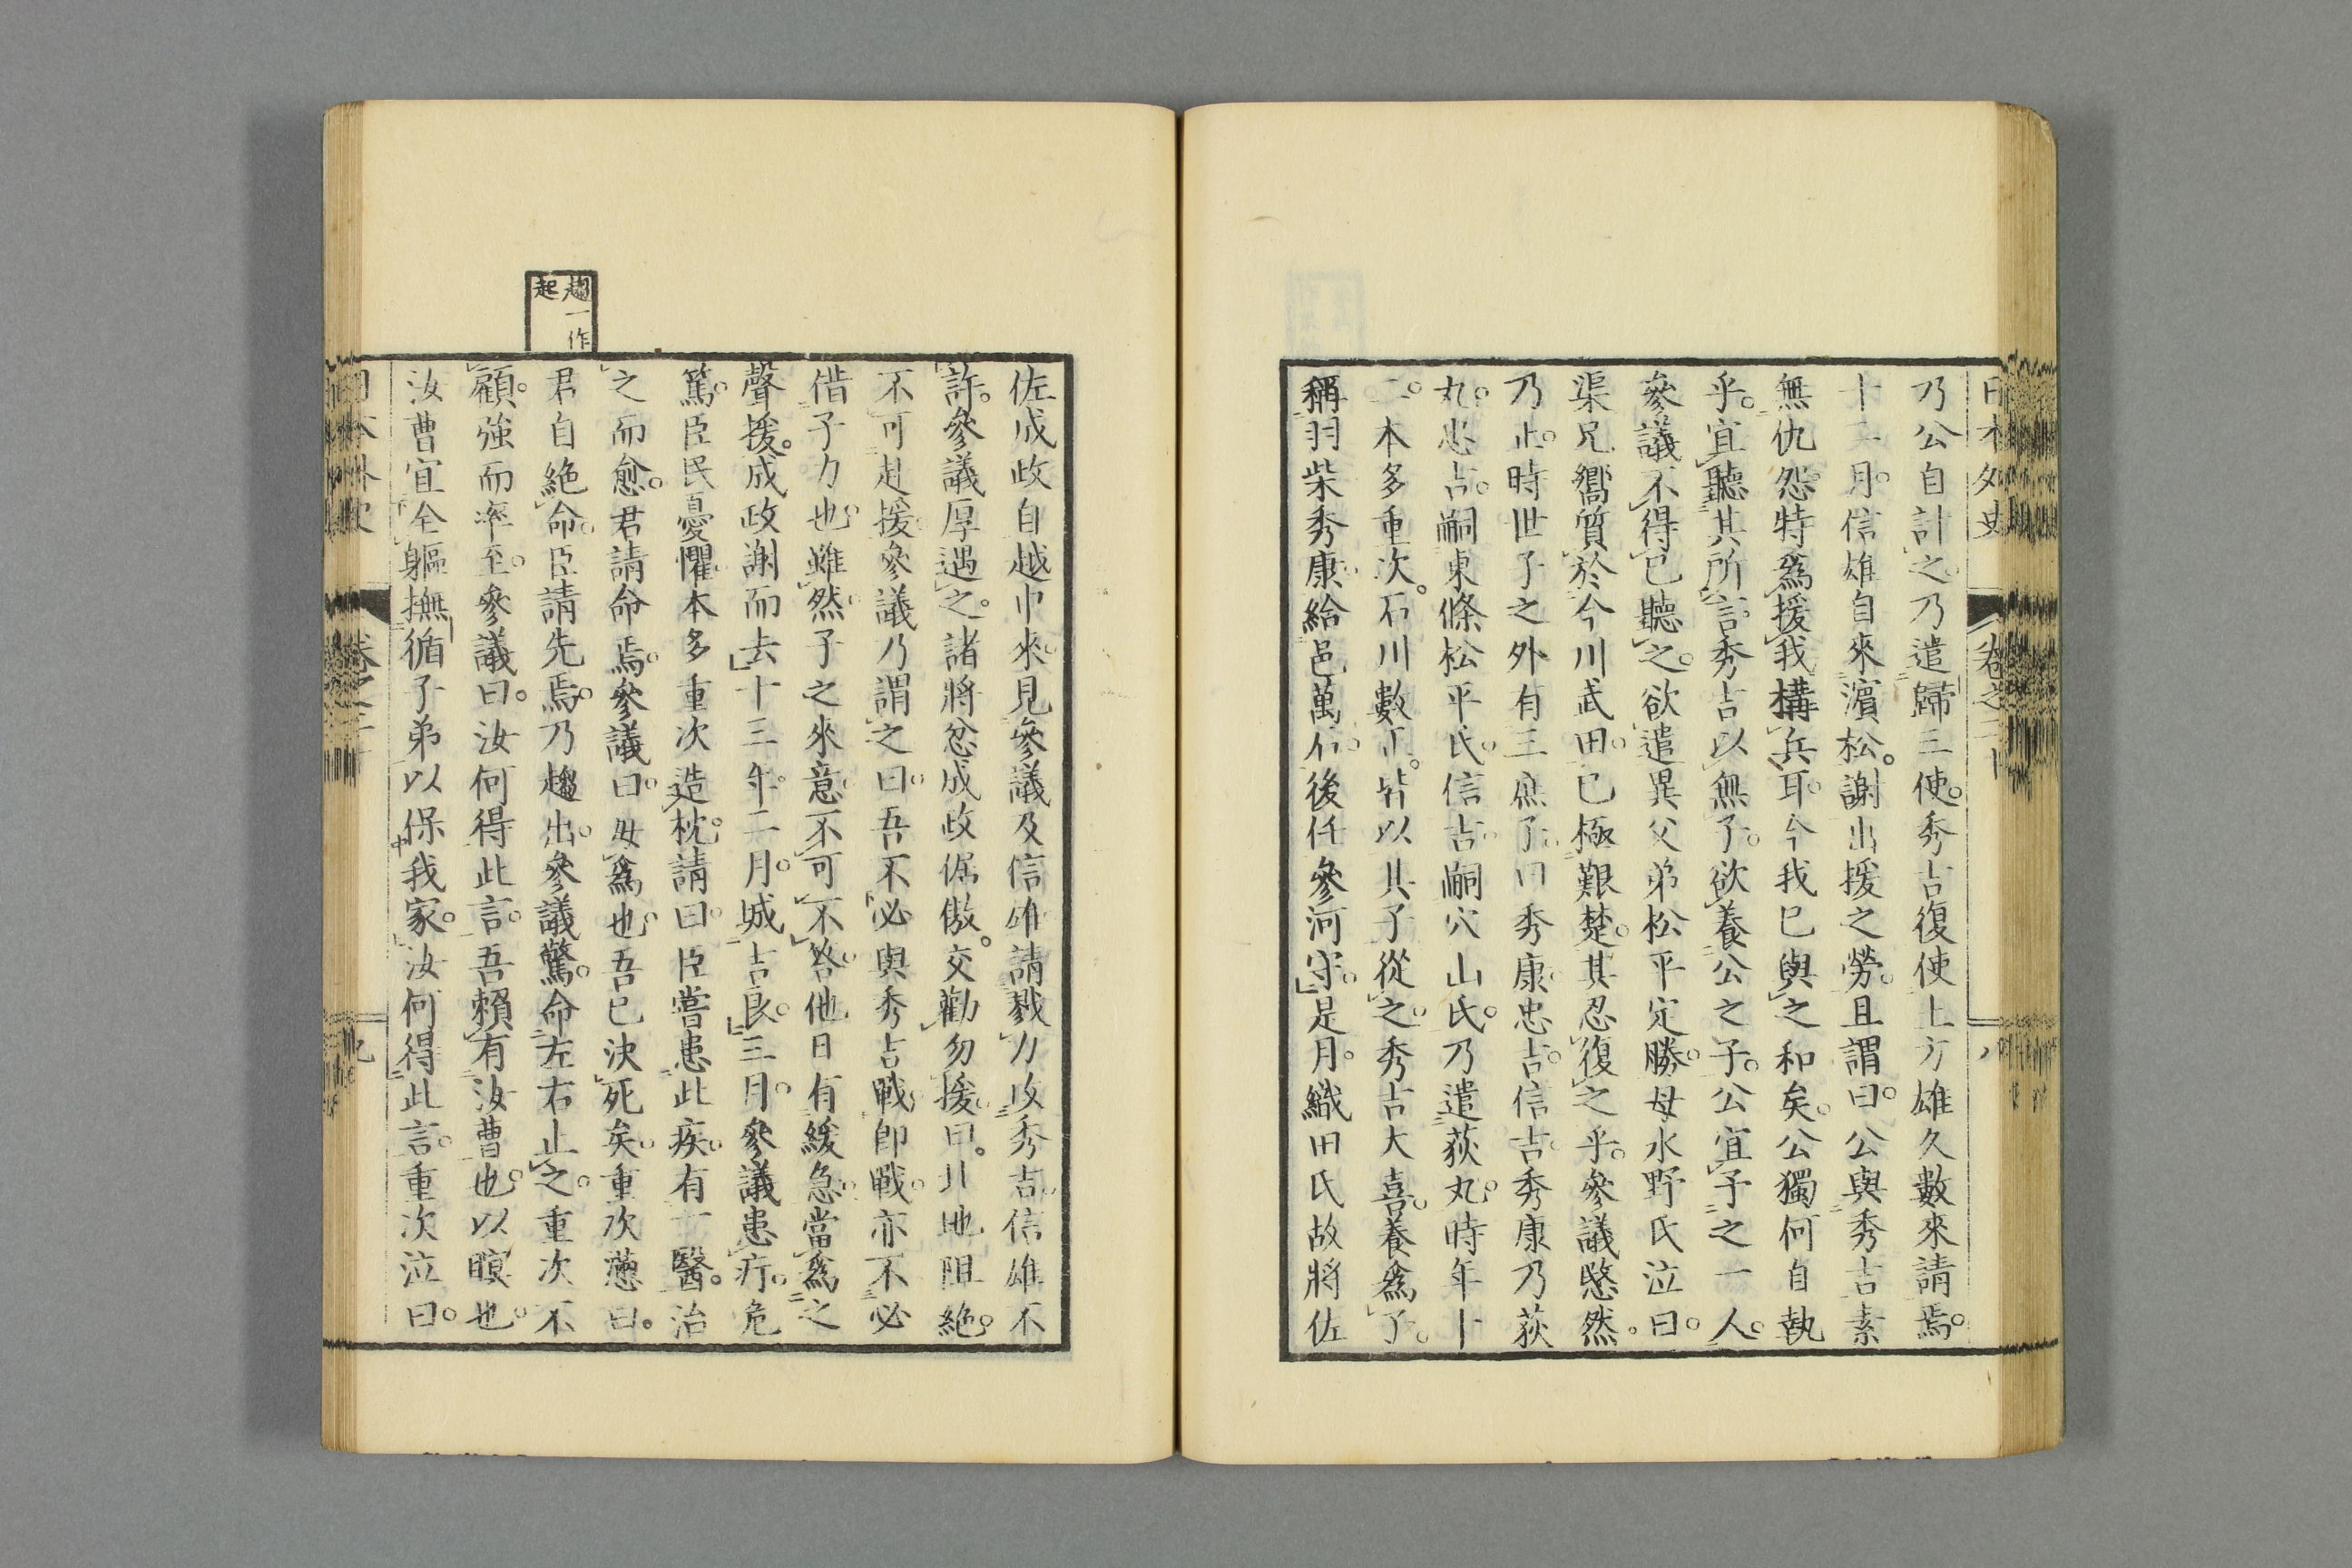 日本外史
卷之二十
八
乃公自計之乃遣歸三使秀吉復使土方雄久數來請焉
十二月信雄自來濱松謝出援之勞且謂曰公與秀吉素
無仇怨特爲援我構兵耳今我已與之和矣公獨何自執
乎宜聽其所言秀吉以無子欲養公之子公宜予之一人
參議不得已聽之欲遣異父弟松平定勝母水野氏泣曰
渠兄嚮質於今川武田已極艱楚其忍復之乎參議愍然
乃止時世子之外有三庶子曰秀康忠吉信吉秀康乃荻
丸忠吉嗣東條松平氏信吉嗣穴山氏乃遣荻丸時年十
二本多重次石川數正皆以其子從之秀吉大喜養爲子
稱羽柴秀康給邑萬石後任參河守是月織田氏故將佐
佐成政自越中來見參議及信雄請戮力攻秀吉信雄不
許參議厚遇之諸將忿成政倨傲交勸勿援曰北地阻絶
不可赴援參議乃謂之曰吾不必與秀吉戰卽戰亦不必
借子力也雖然子之來意不可不答他日有緩急當爲之
聲援成政謝而去十三年二月城吉良三月參議患疔危
篤臣民憂懼本多重次造枕請曰臣嘗患此疾有一醫治
之而愈君請命焉參議曰毋爲也吾已決死矣重次懣曰
君自絶命臣請先焉乃趨出參議驚命左右止之重次不
顧強而率至參議曰汝何得此言吾賴有汝曹也以瞑也
汝曹宜全軀撫循子弟以保我家汝何得此言重次泣曰
趨一作
起
日本外史
卷之二十
九